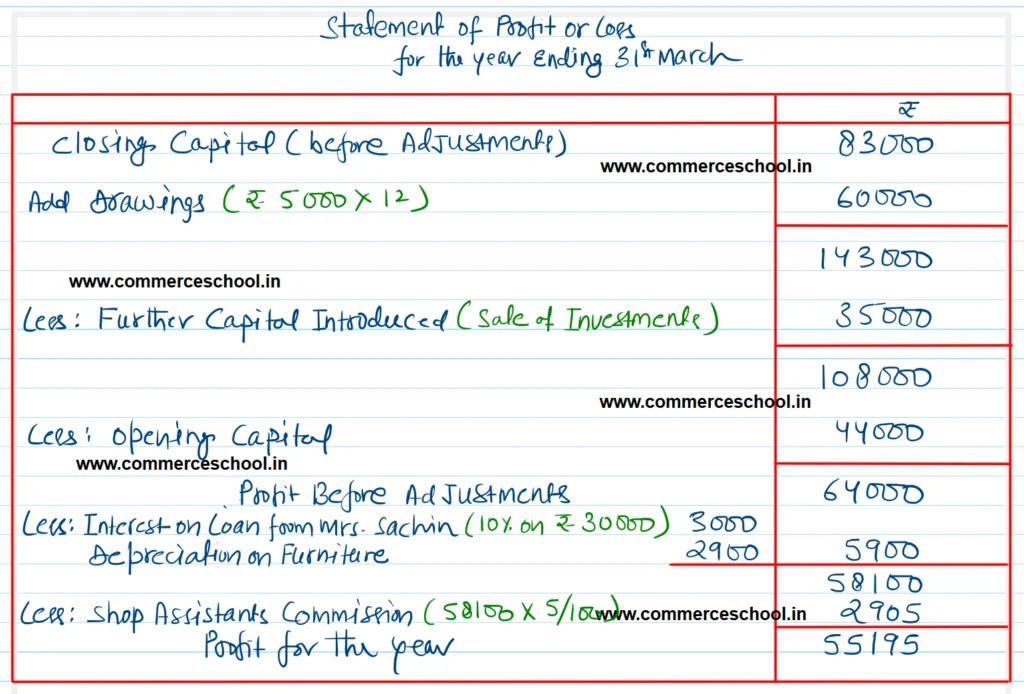 Statement of Profit or Loss
for the year Ending 31st March
₹
Closing Capital (before Adjustments) 83000
www.commerceschool.in
Add Drawings (₹ 5000 X 12) 60000
143000
www.commerceschool.in
Less: Further Capital Introduced (Sale of Investments) 35000
108000
www.commerceschool.in
Less: Opening Capital 44000
www.commerceschool.in
Profit Before Adjustments 64000
Less: Interest on Loan from Mrs. Sachin (10% on ₹ 30000) 3000
Depreciation on Furniture 2900 5900
58100
Less: Shop Assistants Commission (58100 X 5/100) www.commerceschool.in 2905
Profit for the year 55195